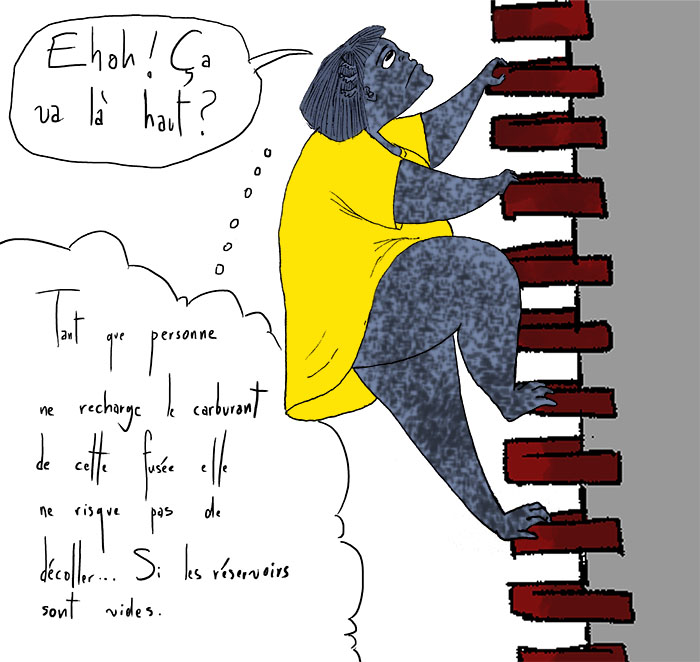 Ehoh! Ça
va là haut?
Tant que personne
ne recharge le carburant
de cette fusée elle
ne risque pas de
décoller... Si les réservoirs
sont vides.